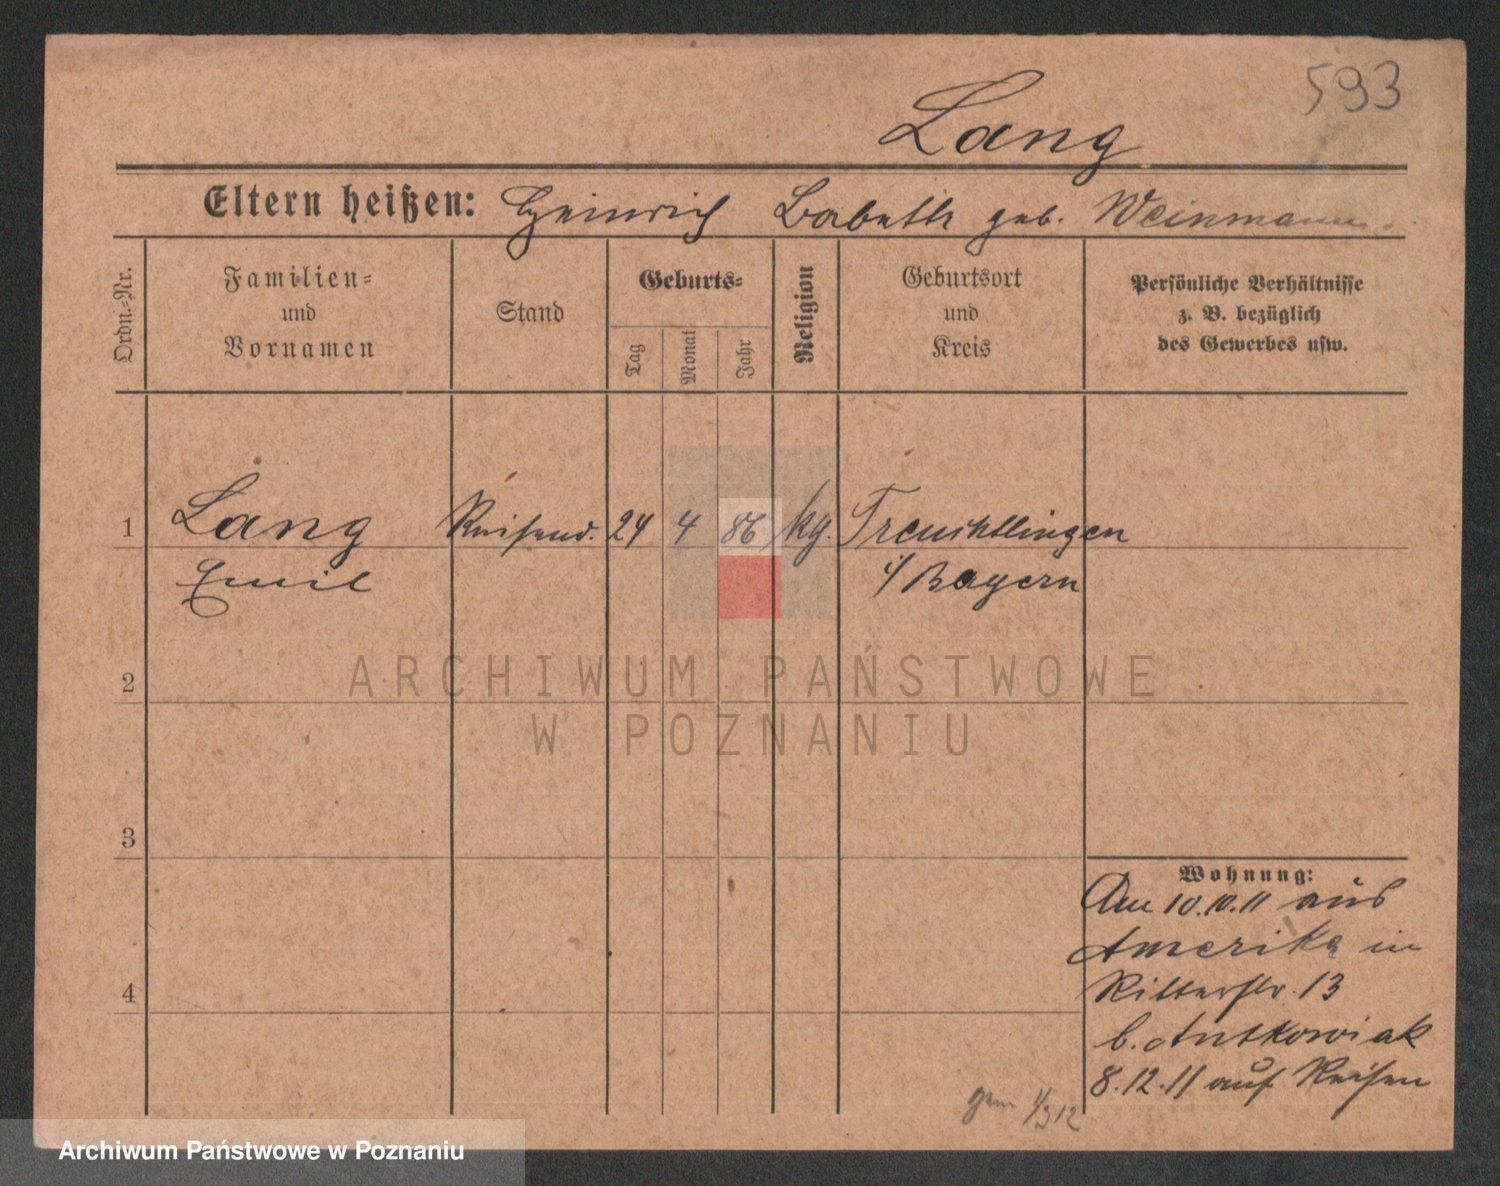 593
Lang
Eltern heißen: Heinrich Babeth geb. Weinmann.
Ordn.-Nr.
Familien-
und
Vornamen
Stand
Geburts-
Tag
Monat
Jahr
Religion
Geburtsort
und
Kreis
Persönliche Verhältnisse
z. B. bezüglich
des Gewerbes usw.
1 Lang Reisend. 24 4 86 kg. Treuchtlingen
Emil i/Bayern
ARCHIWUM PAŃSTWOWE
W POZNANIU
2
3
4
Wohnung:
Am 10.10.11 aus
Amerika in
Ritterstr. 13
b. Antkowiak
8.12.11 auf Reisen
Archiwum Państwowe w Poznaniu